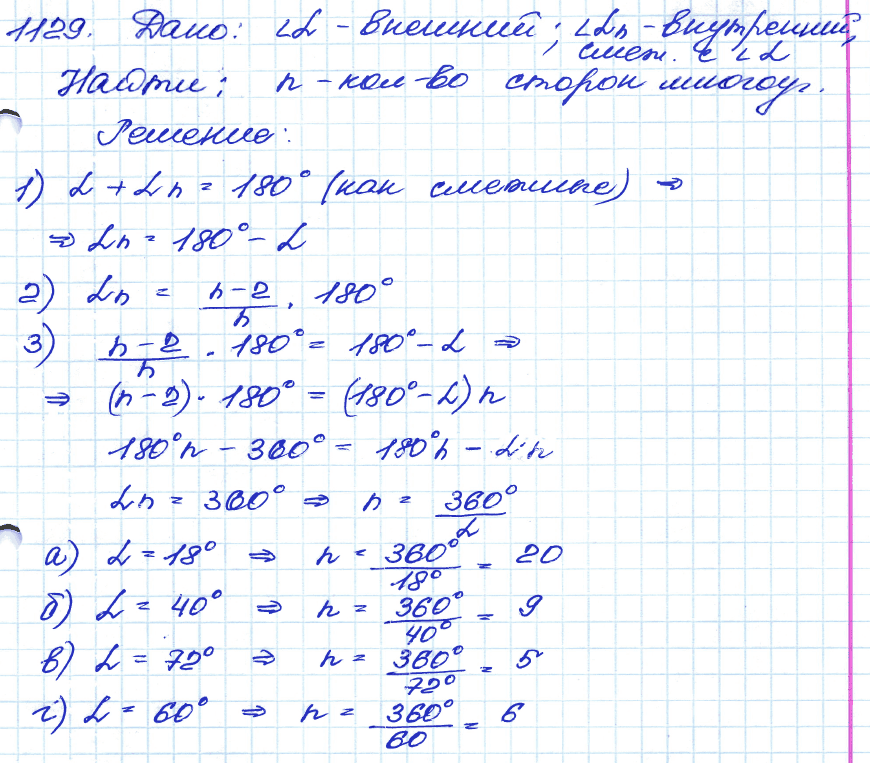 1129. Дано: ∠α - внешний; ∠αn - внутренний,
смеж. с ∠α
Найти: n - кол-во сторон многоуг.
Решение:
1) α + αn = 180° (как смежные) ⇒
⇒ αn = 180° - α
2) αn = (n-2)/n · 180°
3) (n-2)/n · 180° = 180° - α ⇒
⇒ (n-2) · 180° = (180° - α) n
180°n - 360° = 180°n - α·n
αn = 360° ⇒ n = 360°/α
а) α = 18° ⇒ n = 360°/18° = 20
б) α = 40° ⇒ n = 360°/40° = 9
в) α = 72° ⇒ n = 360°/72° = 5
г) α = 60° ⇒ n = 360°/60 = 6